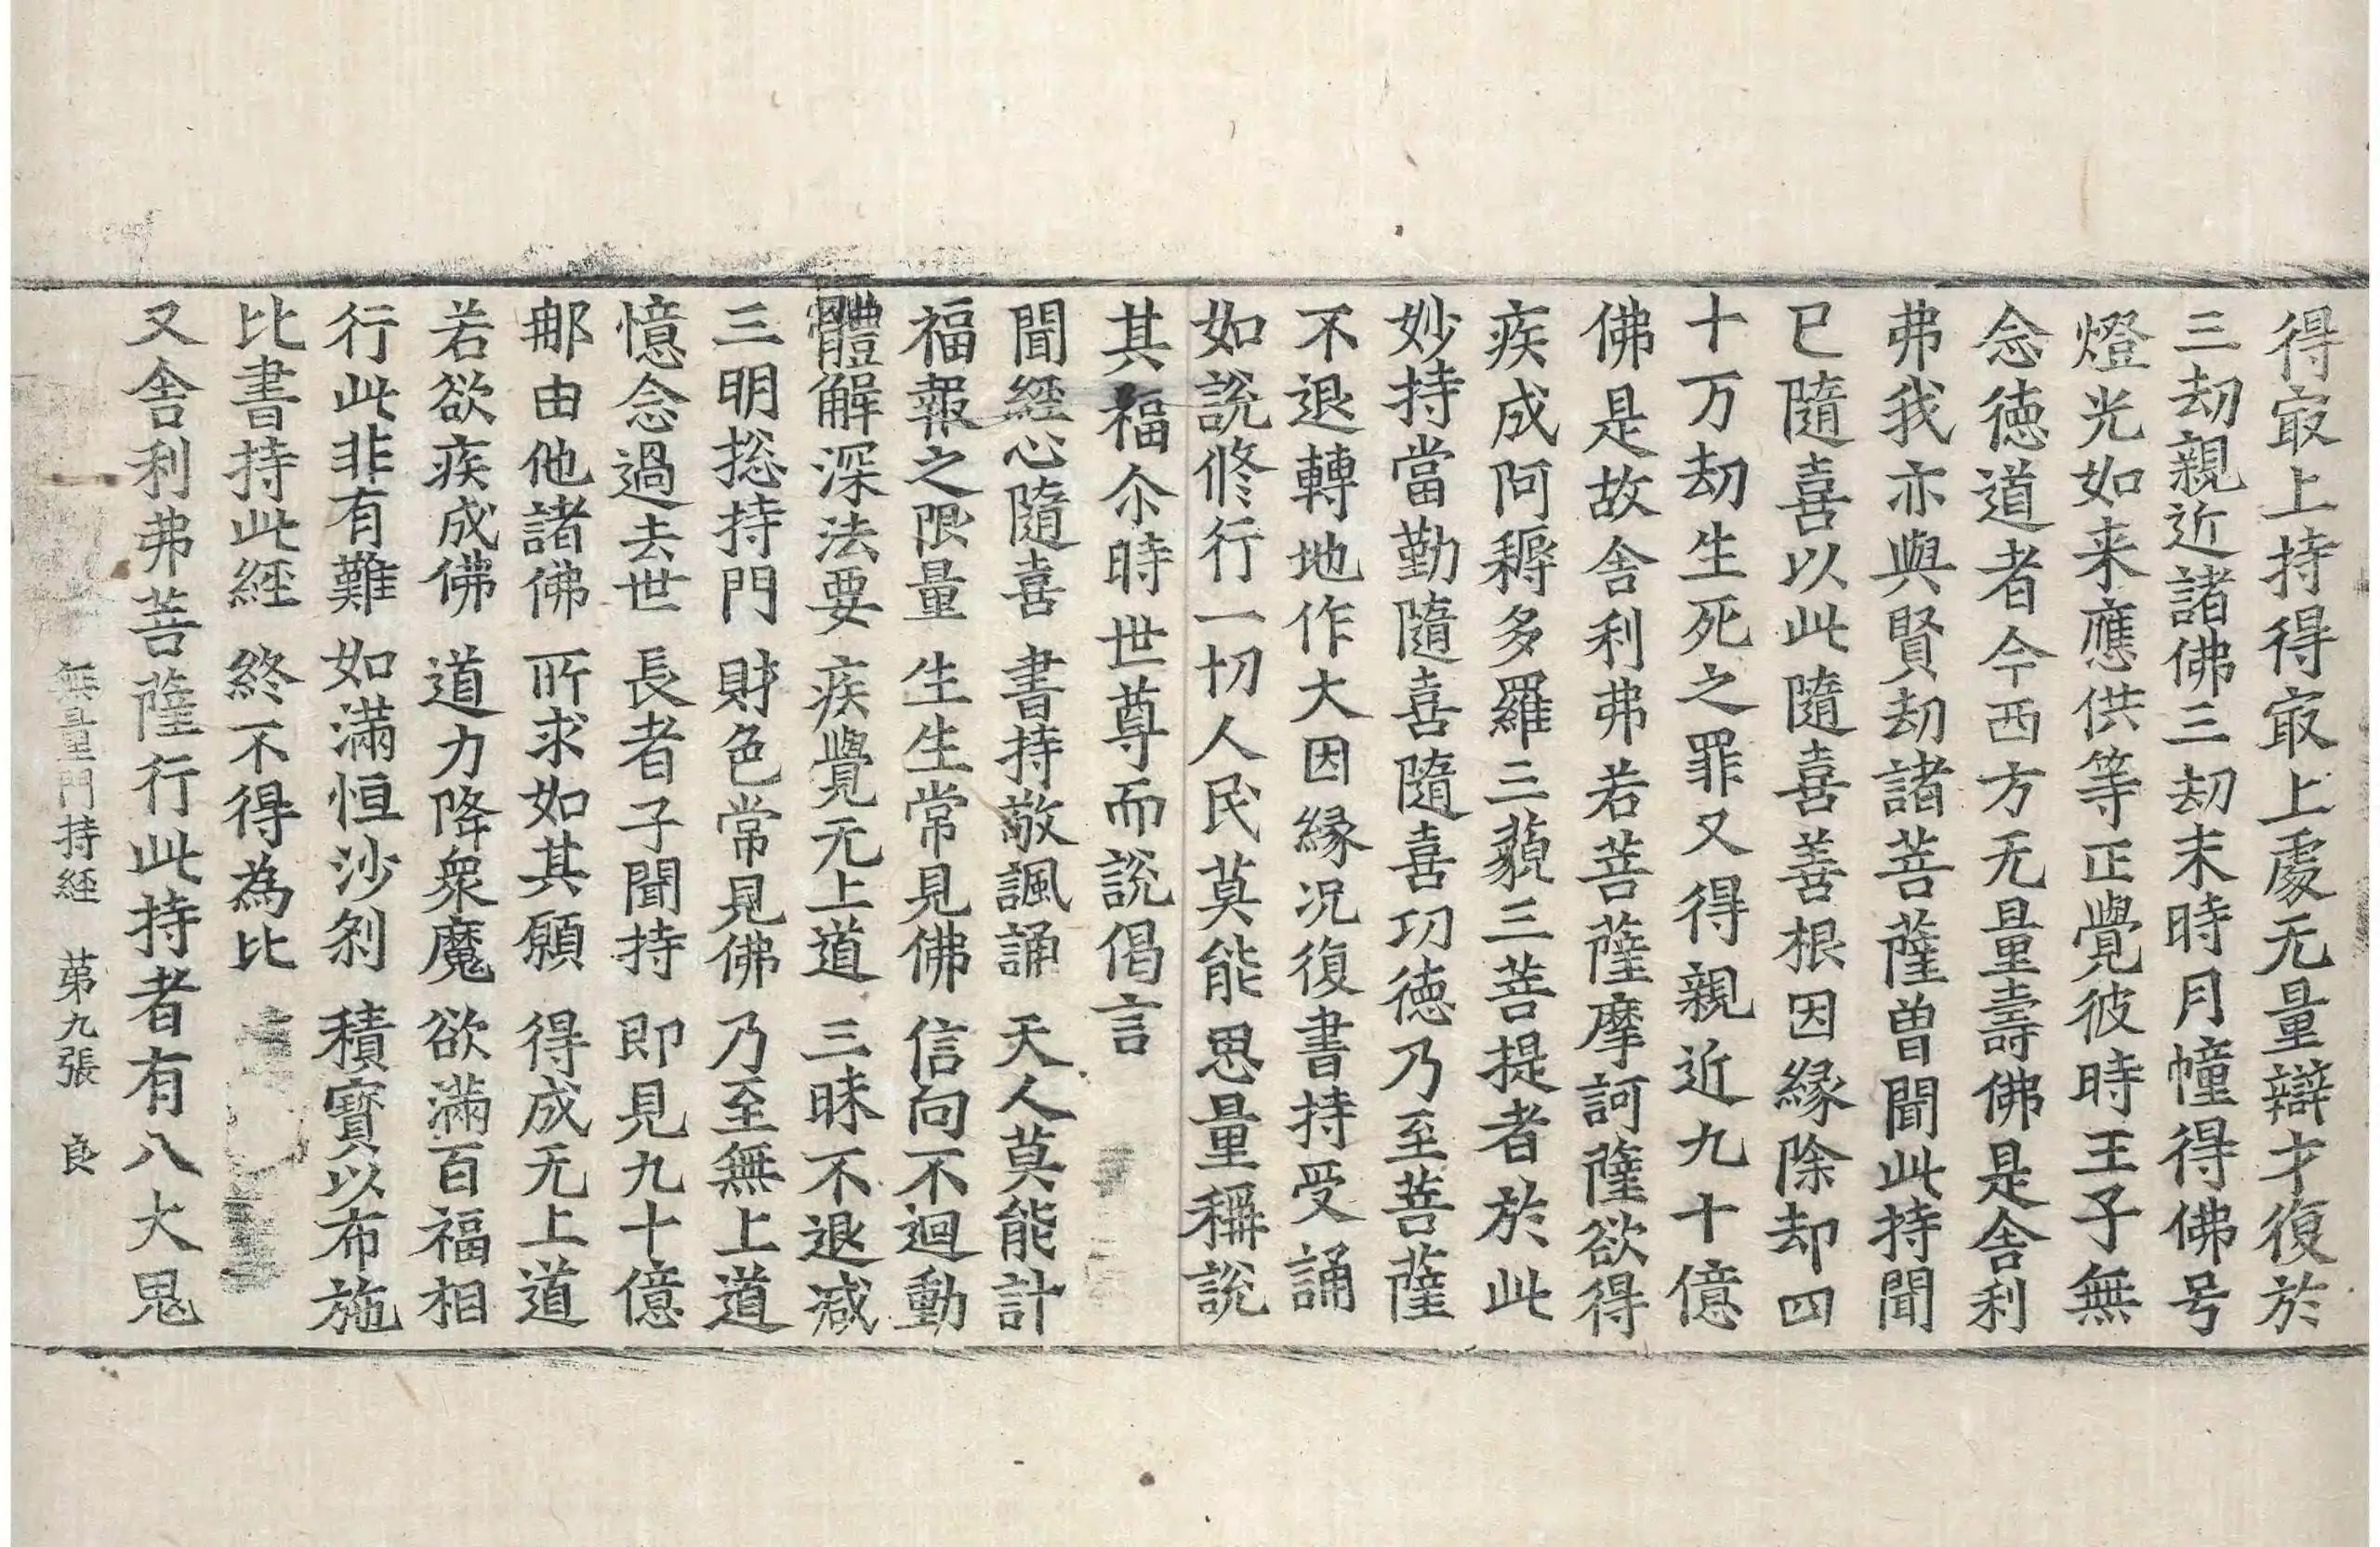 得冣上持得冣上處无量辯才復於
三劫親近諸佛三劫末時月幢得佛号
燈光如来應供等正覺彼時王子無
念徳道者今西方无量壽佛是舎利
弗我亦與賢劫諸菩薩曾聞此持聞
已隨喜以此隨喜善根因縁除却四
十万劫生死之罪又得親近九十億
佛是故舎利弗若菩薩摩訶薩欲得
疾成阿耨多羅三藐三菩提者於此
妙持當勤隨喜隨喜功徳乃至菩薩
不退轉地作大因縁况復書持受誦
如說修行一切人民莫能思量稱說
其福尒時世尊而說偈言
聞經心隨喜　書持敬諷誦　天人莫能計
福報之限量　生生常見佛　信向不迴動
體解深法要　疾覺无上道　三昧不退减
三明捴持門　財色常見佛　乃至無上道
憶念過去世　長者子聞持　即見九十億
那由他諸佛　所求如其願　得成无上道
若欲疾成佛　道力降衆魔　欲滿百福相
行此非有難　如滿恒沙刹　積寳以布施
比書持此經　終不得為比
又舎利弗菩薩行此持者有八大鬼
無量門持経　苐九張　良